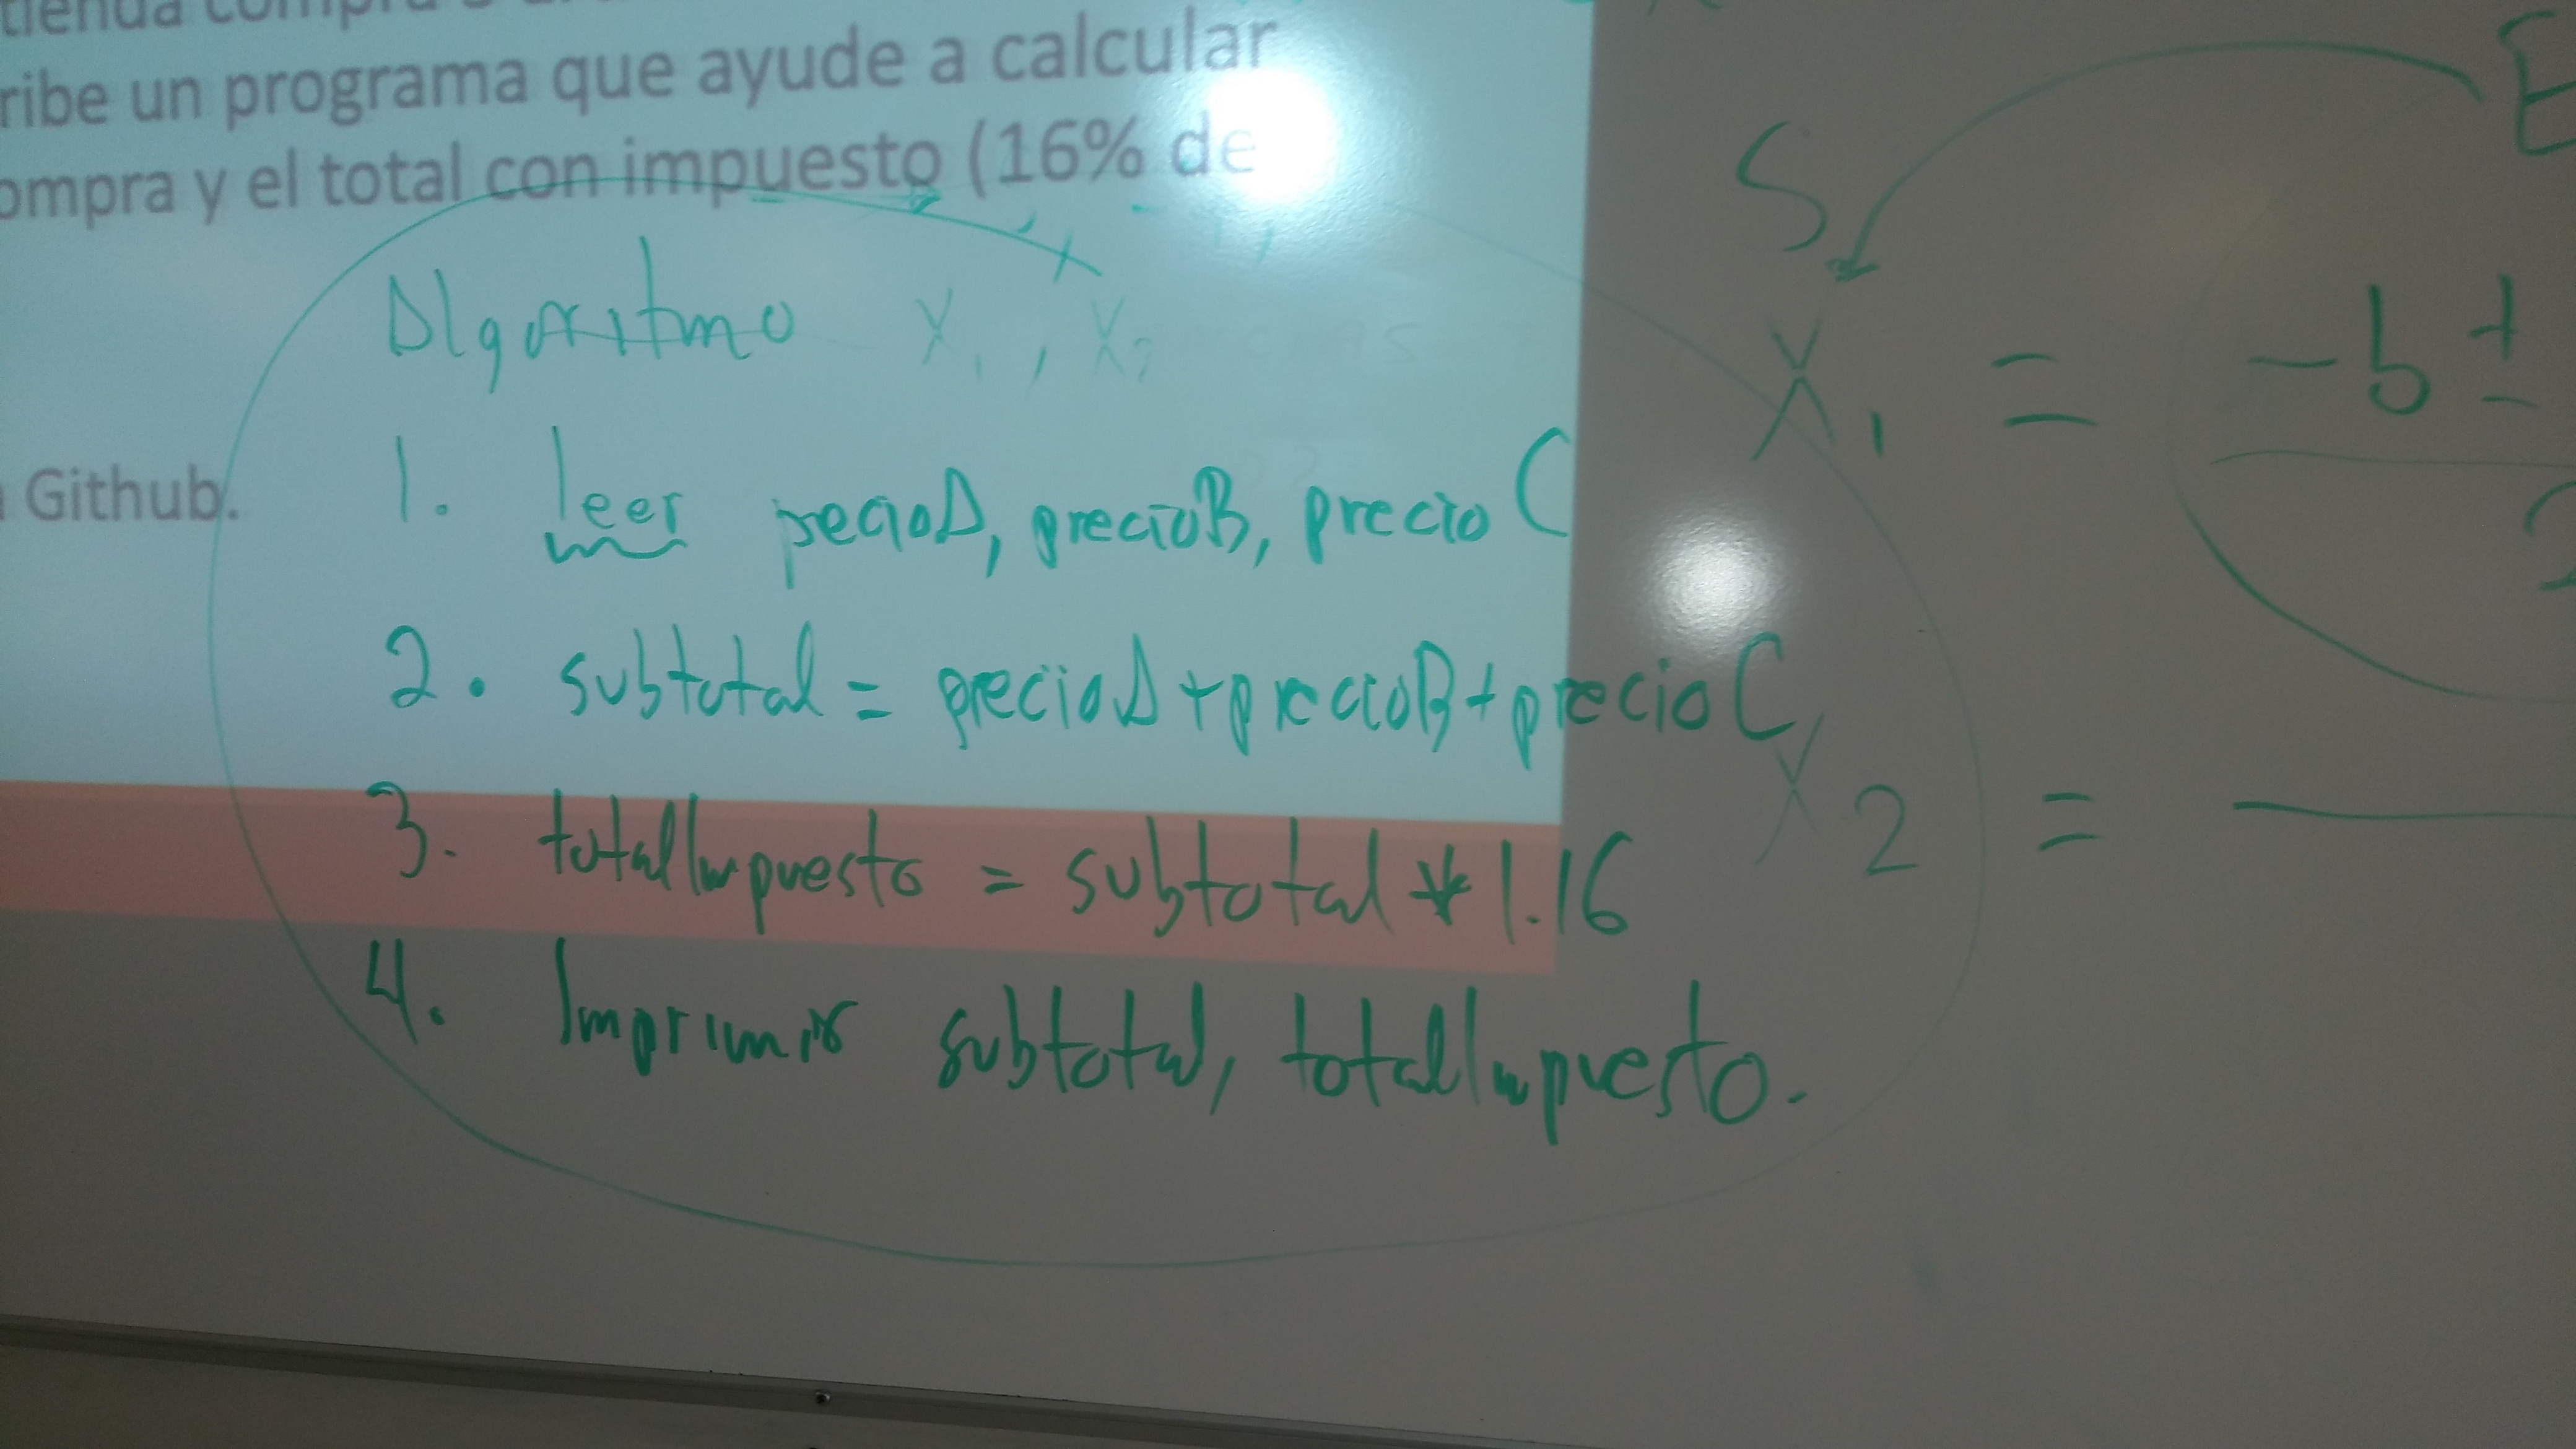 tienda compra
ribe un programa que ayude a calcular
ompra y el total con impuesto (16% de
Github.
Algoritmo X1, X2
1. leer precioA, precioB, precioC
2. subtotal = precioA + precioB + precioC
3. totalImpuesto = subtotal * 1.16
4. Imprimir subtotal, totalImpuesto.
S E
X1 = -b ±
2
X2 =